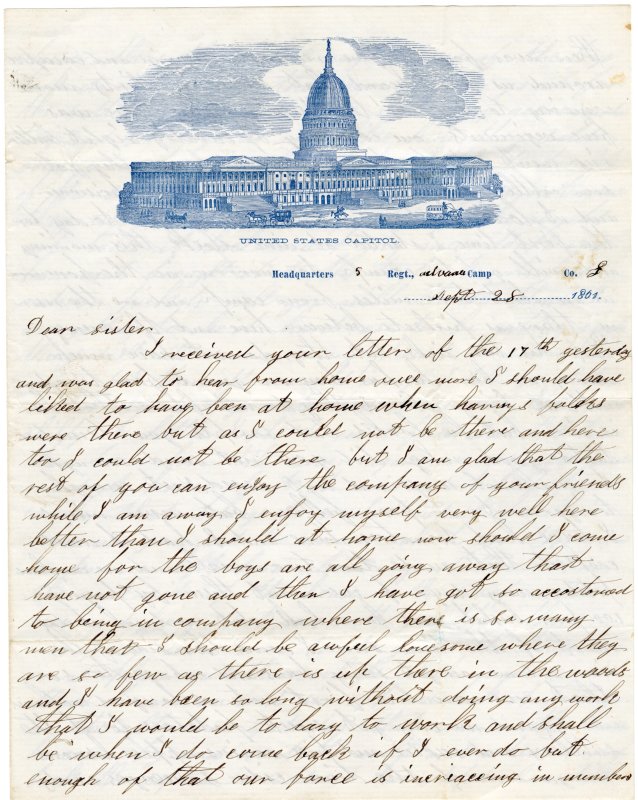 UNITED STATES CAPITOL.
Headquarters 5 Regt., advance Camp Co. I
Sept 28 1861.
Dear sister
I received your letter of the 17th yesterday
and was glad to hear from home once more I should have
liked to have been at home when folks
were there but as I could not be there and here
too I could not be there but I am glad that the
rest of you can enjoy the company of your friends
while I am away I enjoy myself very well here
better than I should at home now should I come
home for the boys are all going away that
have not gone and then I have got so accostomed
to being in company where there is so many
men that I should be awful lonesome where they
are so few as there is up there in the woods
and I have been so long without doing any work
that I would be to lazy to work and shall
be when I do come back if I ever do but
enough of that our force is increaceing in numbers